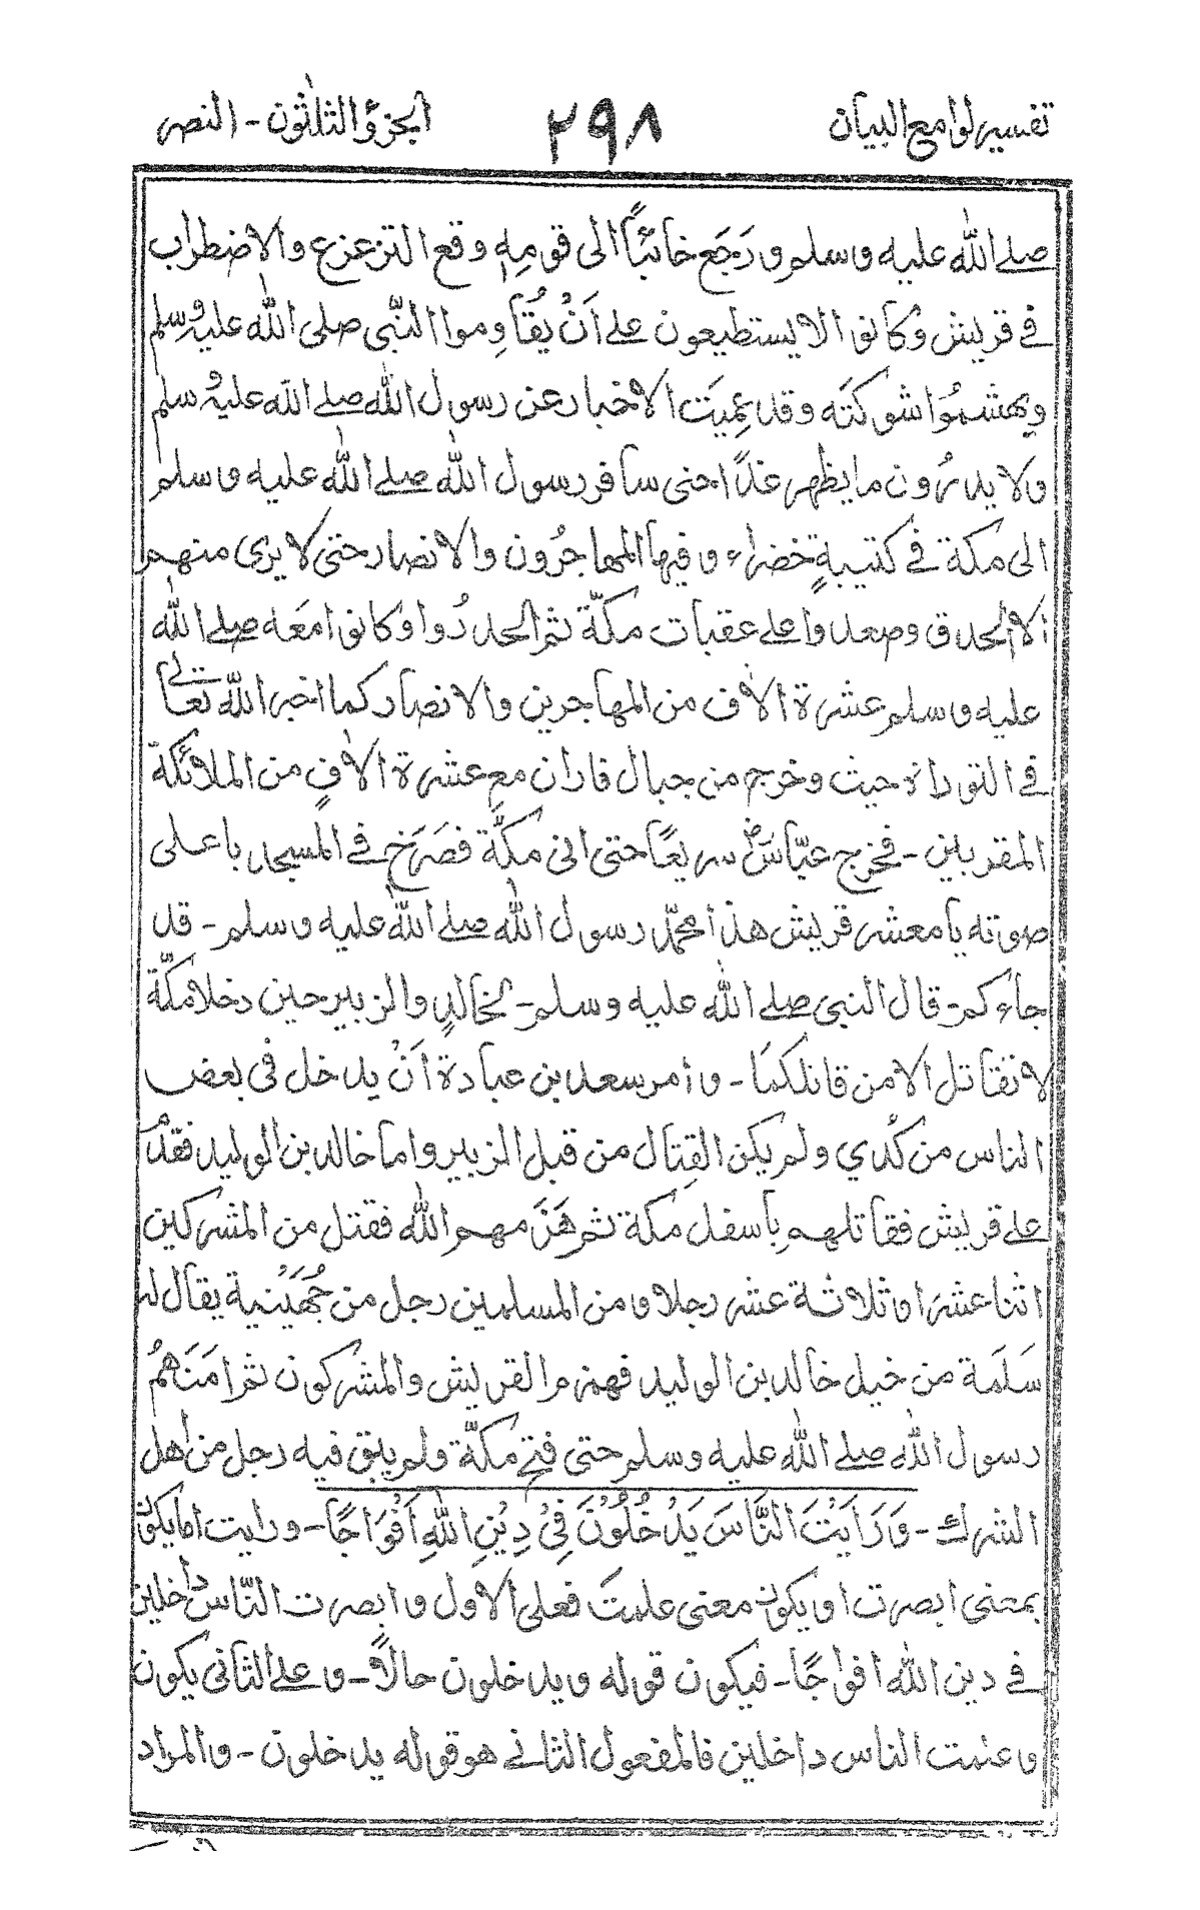 تفسير لوامع البيان ٢٩٨ الجزؤ الثلاثون - النصر
صلے اللّٰه عليه وسلم ورَجَع خائبًا الى قومِهٖ وقع التزعزع والاضطراب
فے قريش وكانوا لا يستطيعون علے اَنْ يُقاوِموا النّبى صلى اللّٰه عليه وسلم
ويهشموُا شوكتَه وقد عِميَت الاخبار عن رسول اللّٰه صلے اللّٰه عليه وسلم
ولا يدرُون ما يظهر غدًا حتى سافر رسول اللّٰه صلے اللّٰه عليه وسلم
الى مكة فے كتيبةٍ خضراء وفيها المهاجرُون والانصار حتى لا يرى منهم
الا الحدق وصعدوا علے عقبات مكّة ثم انحدرُوا وكانوا معَه صلے اللّٰه
عليه وسلم عشرة الاٰف من المهاجرين والانصار كما اخبر اللّٰه تعالے
فے التوراة حيث وخرج من جبال فاران مع عشرة الاٰفٍ من الملائكة
المقربين - فخرج عبّاسؓ سريعًا حتى اتى مكّة فصَرَخ فے المسجد باعلى
صوته يا معشر قريش هذا محمّد رسول اللّٰه صلے اللّٰه عليه وسلم - قد
جاءكم - قال النبى صلے اللّٰه عليه وسلم - لخالدٍ والزبير حين دخلا مكّة
لا تقاتل الا من قاتلكما - وامر سعد بن عبادة اَنْ يدخل فى بعض
الناس من كُدي ولم يكن القِتال من قبل الزبير واما خالد بن الوليد فقدم
علے قريش فقاتلهم بِاسفل مكة ثم هَزَمهم اللّٰه فقتل من المشركين
اثنا عشرَ او ثلاثة عشر رجلا ومن المسلمين رجل من جُهَيْنية يقال له
سَلَمة من خيل خالد بن الوليد فهزم القريش والمشركون ثم امَنَهمُ
رسول اللّٰه صلے اللّٰه عليه وسلم حتى فتح مكّة ولم يبق فيه رجل من اهل
الشرك - وَرَاَيْتَ النَّاسَ يَدْخُلُوْنَ فِىْ دِيْنِ اللّٰهِ اَفْوَاجًا - ورايت اما يكون
بمعنى ابصرت او يكون معنى علمتَ فعلى الاول وابصرت النّاس داخلين
فے دين اللّٰه افواجًا - فيكون قوله ويدخلون حالاً - وعلے الثانى يكون
وعلمت الناس داخلين فالمفعول الثانے هو قوله يدخلون - والمراد